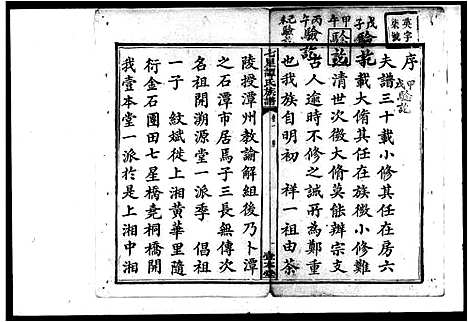 英字
柒號
戊子驗訖
甲午驗訖
丙午驗訖
己驗
序
甲戌驗訖
夫譜三十載小修其任在房六
十載大脩其任在族徵小修難
清世次徵大脩莫能辨宗支
古人逾時不修之誡所為鄭重
也我族自明初 祥一祖由茶
七星譚氏族譜
壹本堂
陵授漳州教諭解組後乃卜潭
之石潭市居焉子三長無傳次
名祖開溯源堂一派季 倡祖
一子 紋斌徙上湘黃華里隨
衍金石團田七星橋堯桐橋開
我壹本堂一派於是上湘中湘